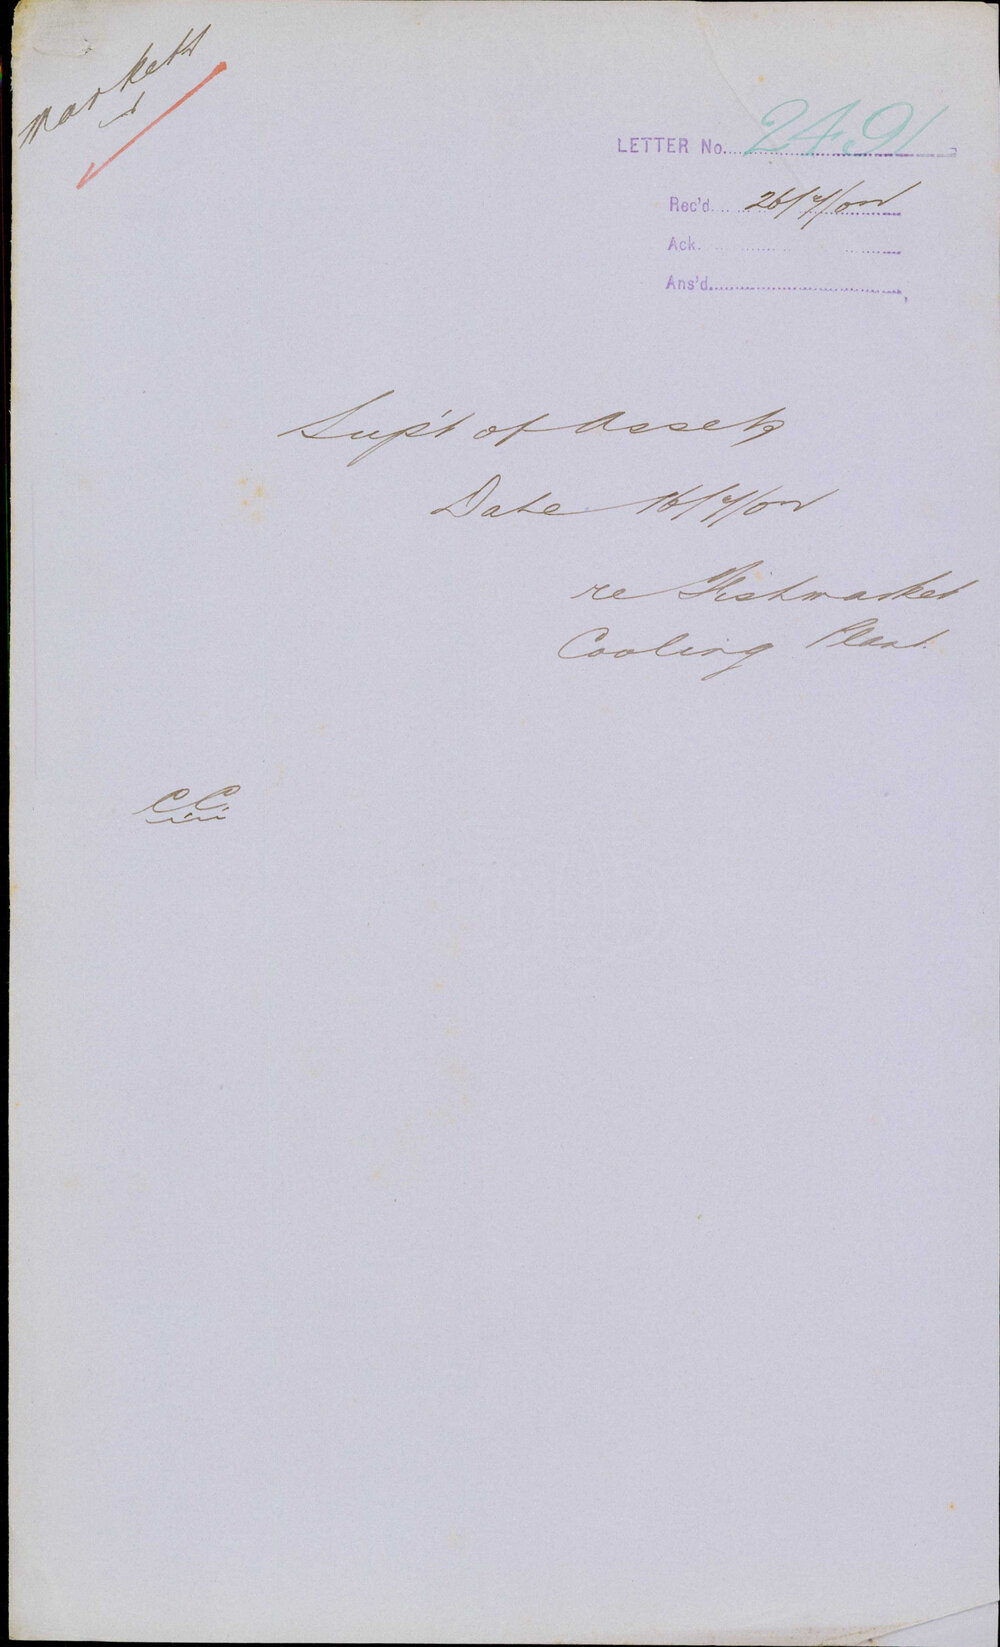 Markets
LETTER No. 2491
Rec'd. 26/4/02
Ack.
Ans'd.
Sup't of Assets
Date 16/4/02
re Fishmarket
Cooling Plant.
C C